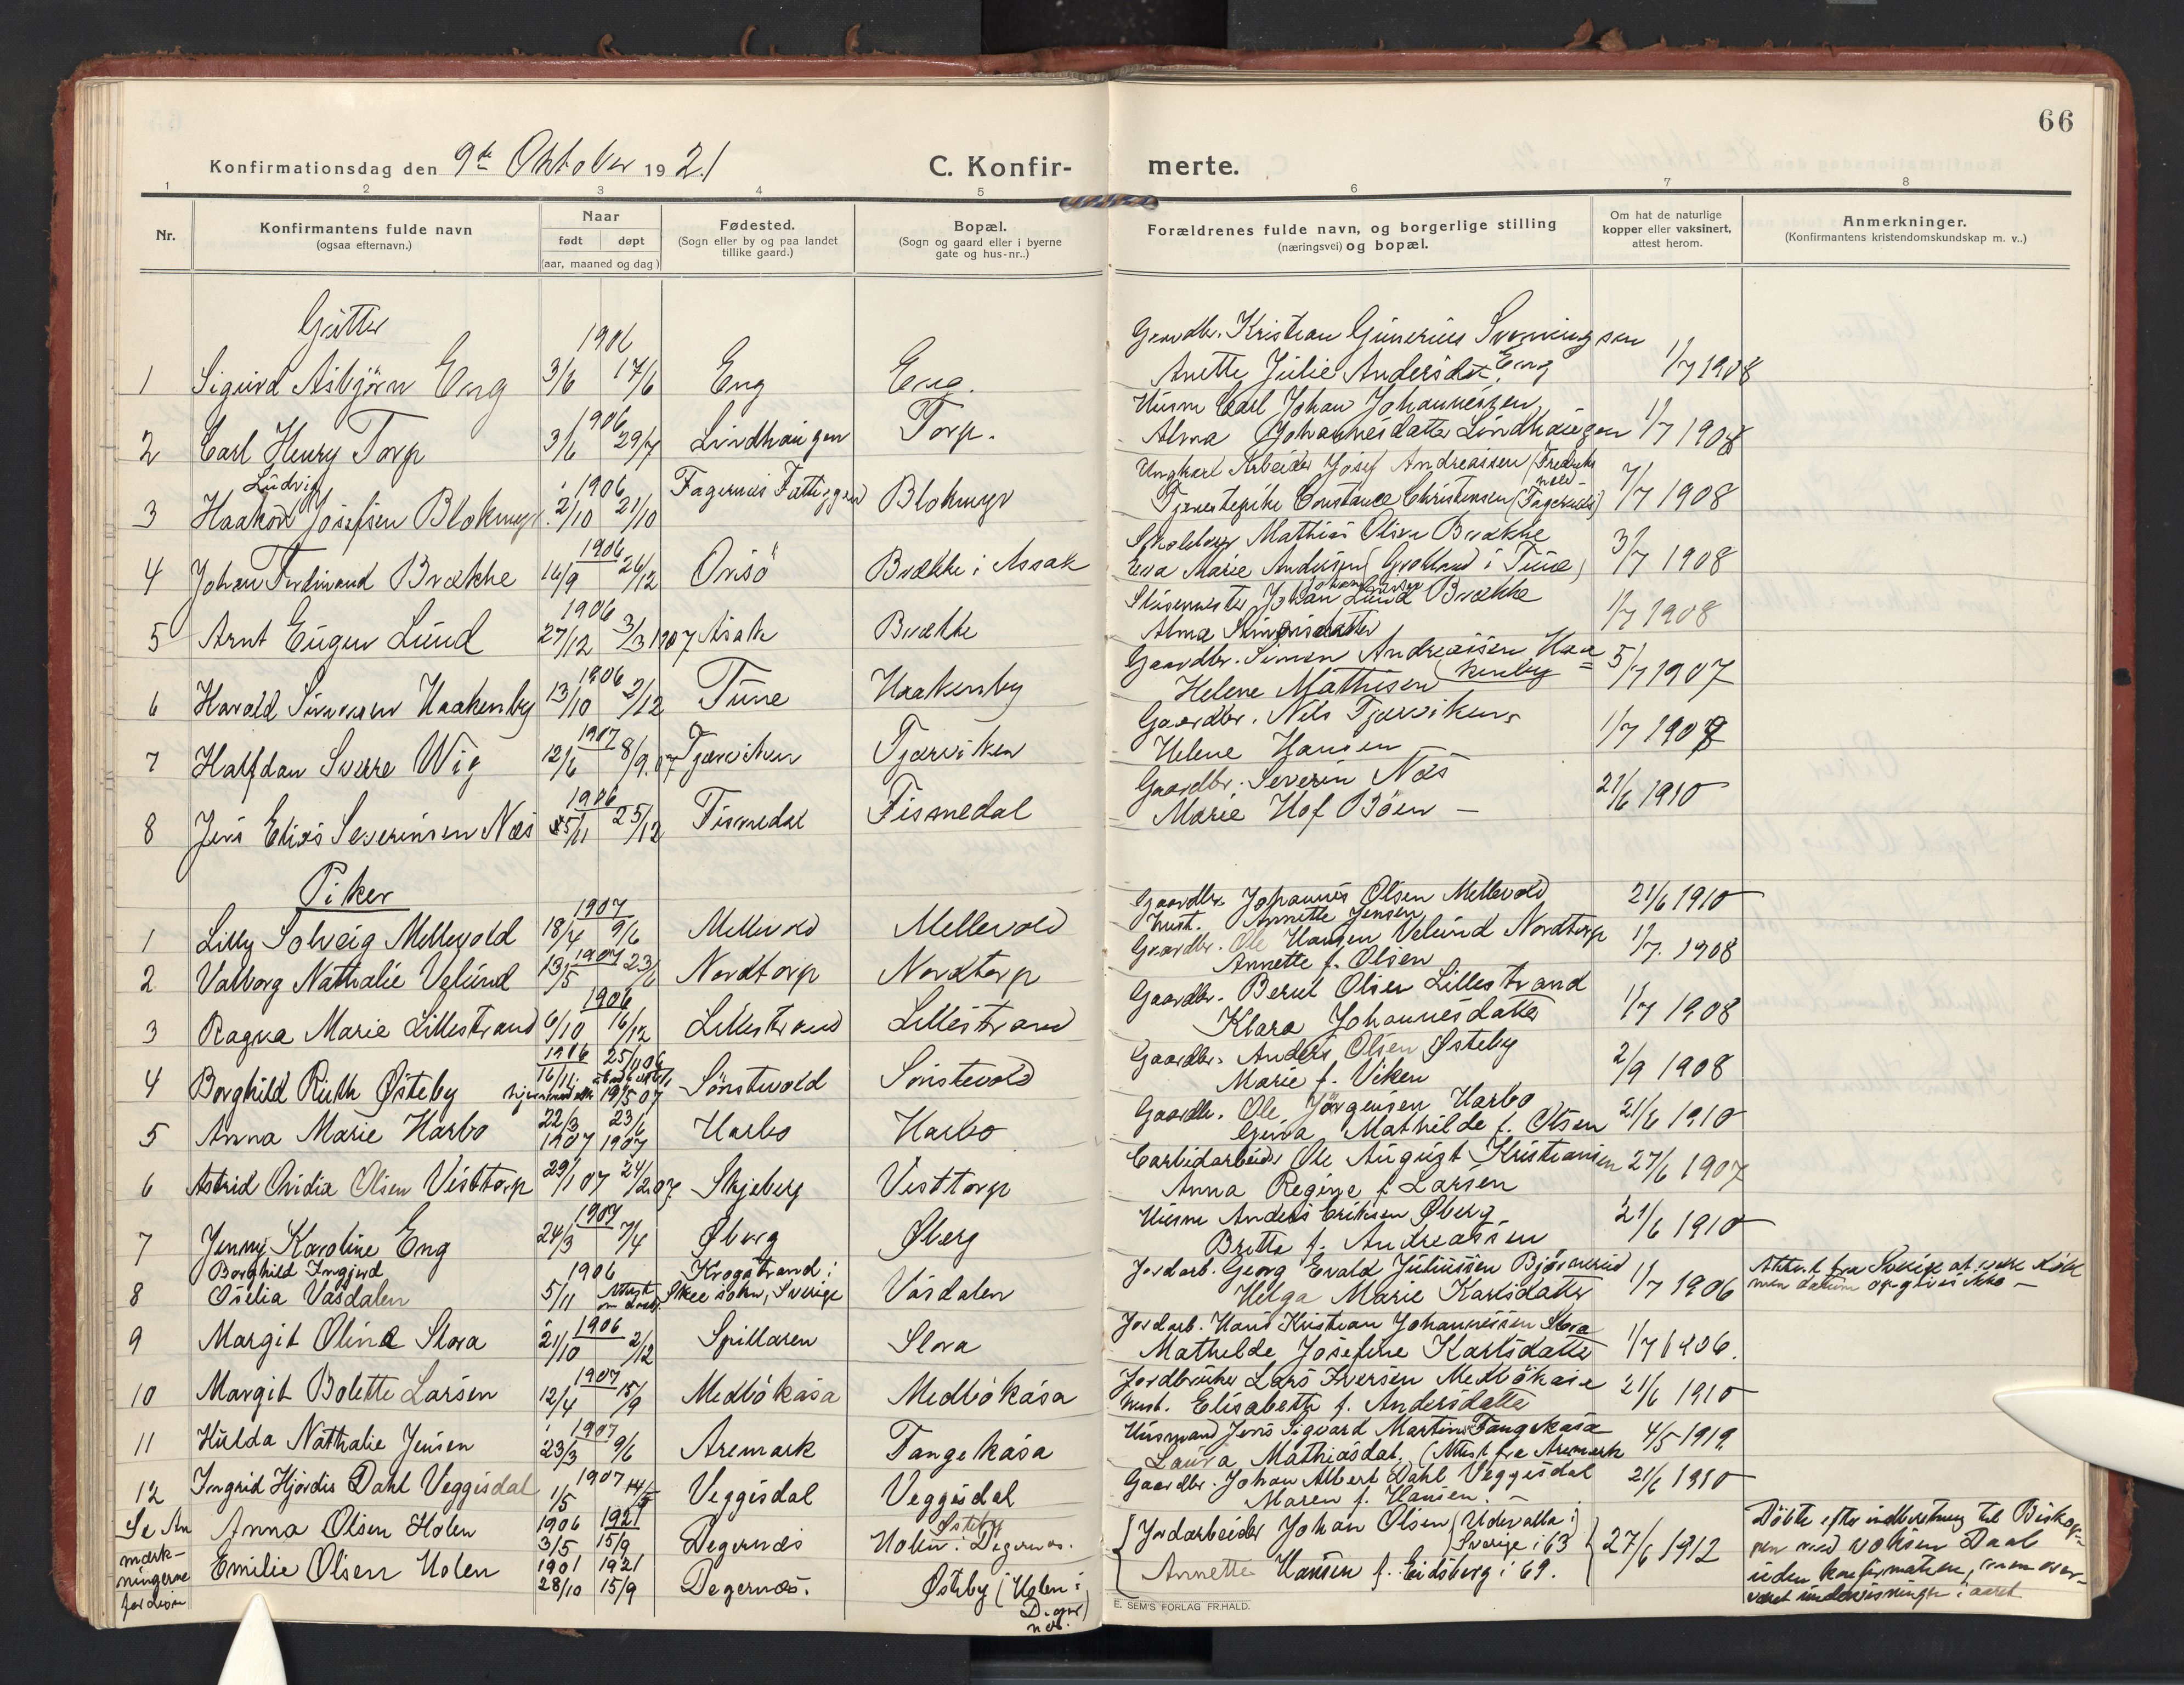 66
Konfirmationsdag den 9de Oktober 1921
C. Konfir- merte.
1 2 3 4 5 6 7 8
Nr.
Konfirmantens fulde navn
(ogsaa efternavn.)
Naar
født døpt
(aar, maaned og dag)
Fødested.
(Sogn eller by og paa landet
tillike gaard.)
Bopæl.
(Sogn og gaard eller i byerne
gate og hus-nr.)
Forældrenes fulde navn, og borgerlige stilling
(næringsvei) og bopæl.
Om hat de naturlige
kopper eller vaksinert,
attest herom.
Anmerkninger.
(Konfirmantens kristendomskundskap m. v..)
Gutter
1906
Gaardbr. Kristian Gunerius Syvningsen
1 Sigurd Asbjörn Eng 3/6 17/6 Eng Eng. Anette Julie Andersdat. Eng 1/7 1908
1906
Husm Carl Johan Johannessen
2 Carl Henry Torp 3/6 29/7 Lindhaugen Torp. Alma Johannesdatter Lindhaugen 1/7 1908
Ludvig 1906 Ungkarl Arbeider Josef Andreassen (Fredriks
3 Haakon Josefsen Blokmyr 2/10 21/10 Fagernes Fattiggaard Blokmyr Tjenestepike Constance Christensen (Fagernes) 1/7 1908
1906
Mathias Olsen Brække
4 Johan Ferdinand Brække 16/9 26/12 Orisö Brække i Assak Eva Marie Andersen (Grotland i Tune) 3/7 1908
1906
Johan Lund Brække
5 Arnt Eugen Lund 27/12 3/3 1907 Asak Brække Alma Simonsdatter 1/7 1908
1906
Gaardbr. Simen Andreassen Haa=
kenby
6 Harald Simensen Haakenby 13/10 2/12 Tune Haakenby Helene Mathisen 5/7 1907
1907
Gaardbr. Nils Tjærviken
7 Halfdan Sverre Wig 12/6 8/9.07 Tjærviken Tjærviken Helene Hansen 1/7 1909
1906
Gaardbr. Severin Næs
8 Jens Elias Severinsen Næs 25/11 25/12 Tismedal Tismedal Marie Hof Böen 21/6 1910
Piker
1907
Gaardbr. Johannes Olsen Mellevold
1 Lilly Solveig Mellevold 18/4 9/6 Mellevold Mellevold hust. Annette Jensen 21/6 1910
1907
Gaardbr. Ole Hansen Velund Nordtorp
2 Valborg Nathalie Velund 13/5 23/6 Nordtorp Nordtorp Annette f. Olsen 1/7. 1908
1906
Gaardbr. Berul Olsen Lillestrand
3 Ragna Marie Lillestrand 6/10 16/12 Lillestrand Lillestrand Klara Johannesdatter 1/7 1908
1906 25/11 06
Gaardbr. Anders Olsen Østeby
4 Borghild Ruth Østeby 16/11. 19/5 07 Sönstevold Sönstevold Marie f. Viken 2/9 1908
22/3 23/6
Gaardbr. Ole Jörgensen Harbo
5 Anna Marie Harbo 1907 1907 Harbo Harbo Gina Mathilde f. Olsen 21/6 1910
Carbidarbeider Ole August Kristiansen
6 Astrid Ovidia Olsen Visttorp 29/1 07 24/2 07 Skjeberg Visttorp Anna Regine f Larsen 27/6 1907
1907
Husm Anders Eriksen Øberg
7 Jenny Karoline Eng 24/3 7/4 Øberg Øberg Britta f. Andreassen 21/6 1910
Borghild Ingjerd 1906 Krogstrand i
Jordarb. Georg Evald Juliussen Bjørnerud
8 Osilia Vasdalen 5/11 Attest om daab Skee sokn, Sverige Vasdalen Helga Marie Karlsdatter 1/7 1906 Attest fra Sverige at være döbt
men datum opgives ikke
1906
Jordarb. Hans Kristian Johannessen Slora
9 Margit Olina Slora 21/10 2/12 Spillaren Slora Mathilde Josefine Karlsdatter 1/7 1906.
1907
Jordbruker Lars Iversen Medbökåsa
10 Margit Bolette Larsen 12/4 15/9 Medbökåsa Medbökåsa hust. Elisabeth f. Andersdatter 21/6 1910
1907
Husmand Jens Sigvard Martin Tangekåsa
11 Hulda Nathalie Jensen 23/3 9/6 Aremark Tangekåsa Laura Mathiasdat. (Attest fra Aremark 4/5 1919
1907
Gaardbr. Johan Albert Dahl Veggisdal
12 Ingrid Hjördis Dahl Veggisdal 1/5 14/5 Veggisdal Veggisdal Maren f. Hansen. 21/6 1910
Se An
mærk-
ningerne
for disse
Anna Olsen Holen 1906 3/5 1921 15/9 Degernæs Østeby Holen i Degernæs.
Jordarbeider Johan Olsen (Udevalla i
Sverige i 63
Emilie Olsen Holen 1901 28/10 1921 15/9 Degernæs. Østeby (Holen i
Deger
næs.)
Annette Hansen f. Eidsberg i 69. 27/6 1912
Döbte efter indberetning til Biskop-
pen med voksen Daab
uden konfirmation, men over-
været undervisningen i aaret
E. SEM'S FORLAG FR.HALD.